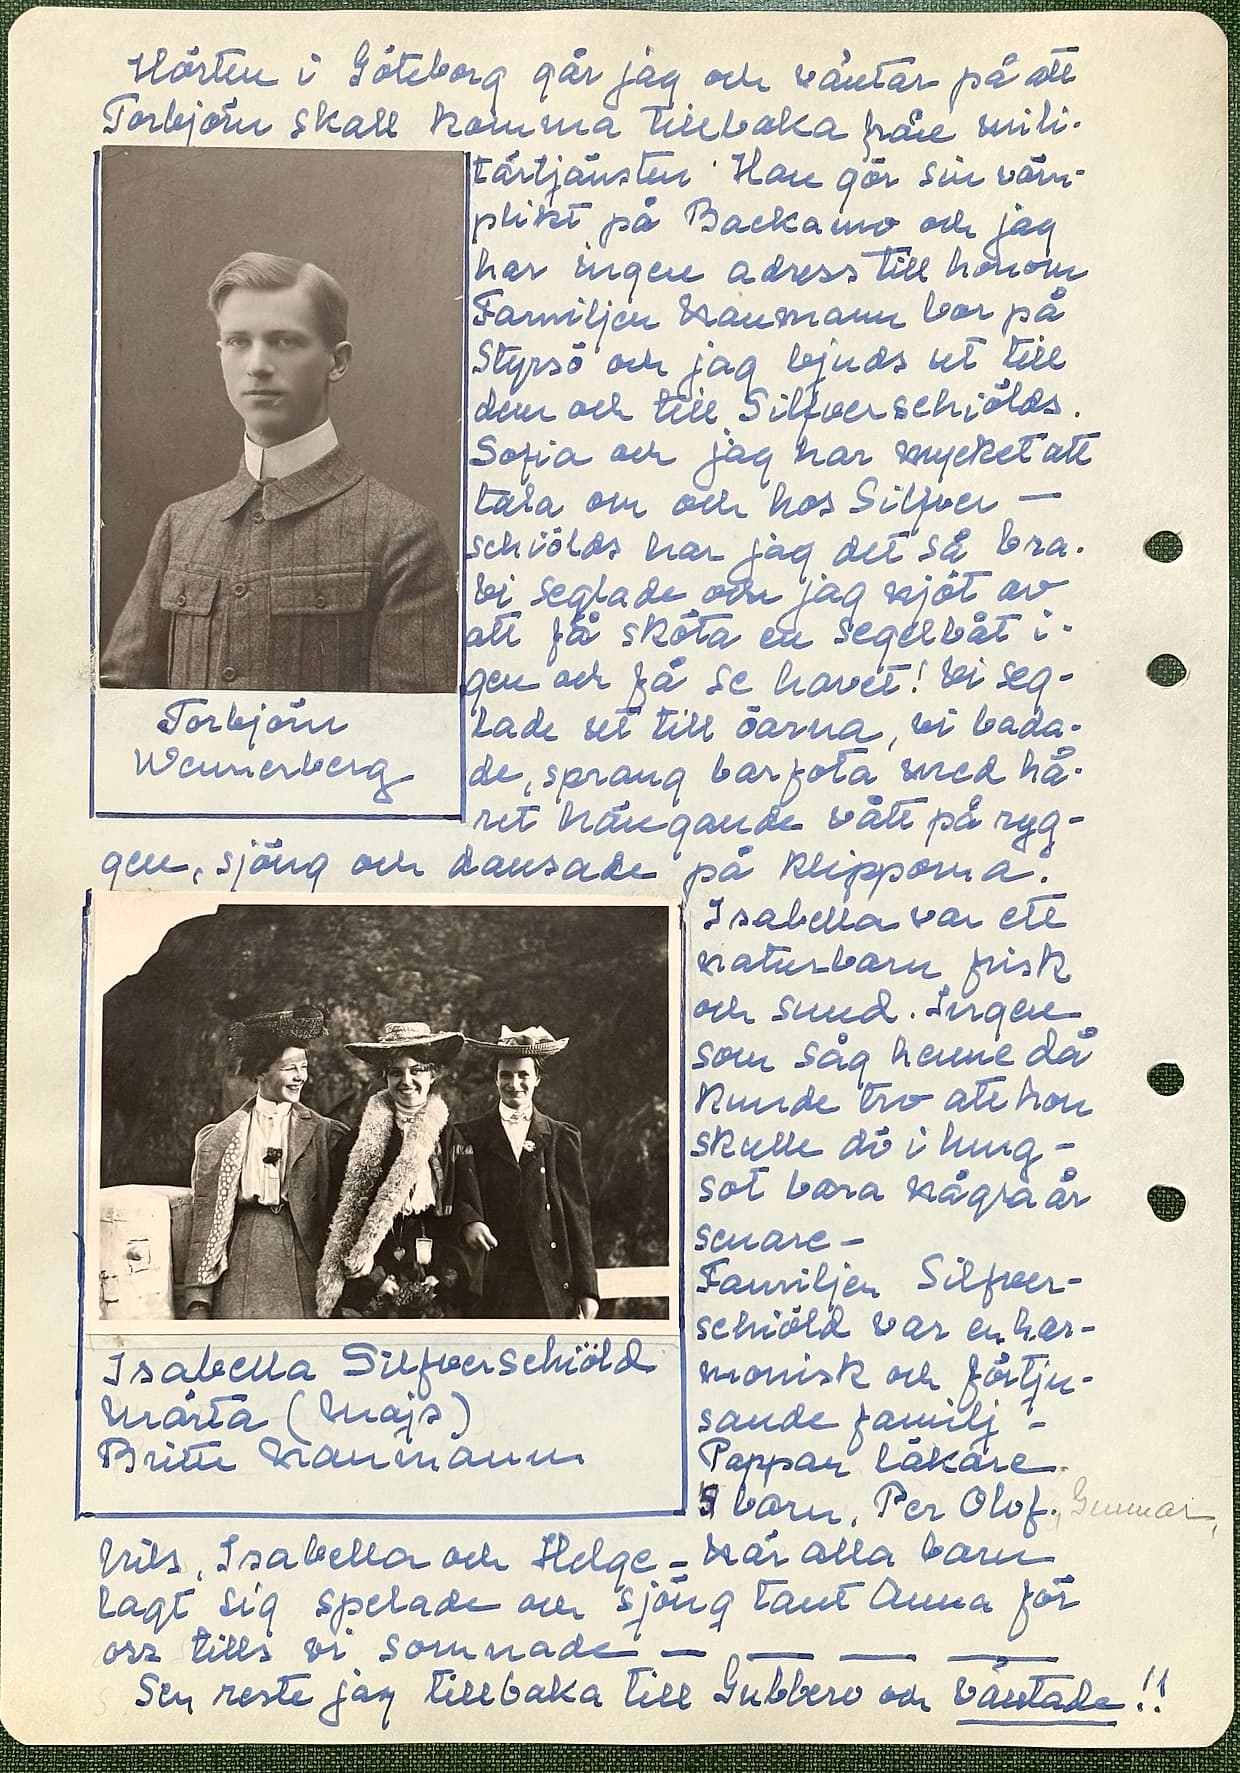 Hösten i Göteborg går jag och väntar på att
Torbjörn skall komma tillbaka från mili-
tärtjänsten. Han gör sin värn-
plikt på Backamo och jag
har ingen adress till honom
Familjen Naumann bor på
Styrsö och jag bjuds ut till
dem och till Silfverschiölds.
Sofia och jag har mycket att
tala om och hos Silfver –
schiölds har jag det så bra.
Vi seglade och jag njöt av
att få sköta en segelbåt i-
gen och få se havet! Vi seg-
lade ut till öarna, vi bada-
de, sprang barfota med hå-
ret hängande vått på ryg-
gen, sjöng och dansade på klipporna.
Torbjörn
Wennerberg
Isabella var ett
naturbarn, frisk
och sund. Ingen
som såg henne då
kunde tro att hon
skulle dö i lung-
sot bara några år
senare –
Familjen Silfver-
schiöld var en har-
monisk och förtju-
sande familj –
Pappan läkare.
5 barn, Per Olof, Gunnar,
Nils, Isabella och Helge – När alla barn
lagt sig spelade och sjöng tant Anna för
oss tills vi somnade – — — —
Sen reste jag tillbaka till Gubbero och väntade!!
Isabella Silfverschiöld
Märta (Majs)
Britte Naumann